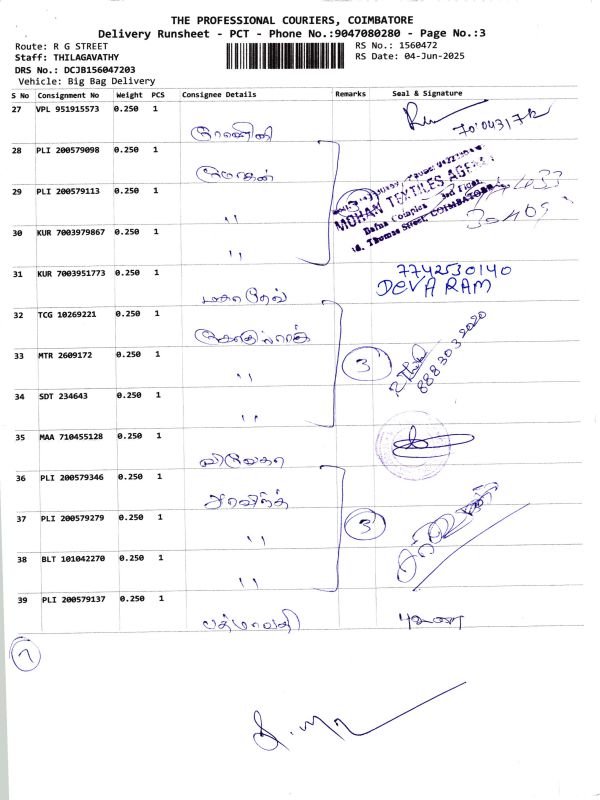 THE PROFESSIONAL COURIERS, COIMBATORE
Delivery Runsheet - PCT - Phone No.:9047080280 - Page No.:3
Route: R G STREET
Staff: THILAGAVATHY
DRS No.: DCJB156047203
Vehicle: Big Bag Delivery
RS No.: 1560472
RS Date: 04-Jun-2025
S No Consignment No Weight PCS Consignee Details Remarks Seal & Signature
27 VPL 951915573 0.250 1
28 PLI 200579098 0.250 1
மோகன்
29 PLI 200579113 0.250 1
''
MOHAN TEXTILES AGENCY
30 KUR 7003979867 0.250 1
''
31 KUR 7003951773 0.250 1
மகாதேவ்
7742530140
DEVA RAM
32 TCG 10269221 0.250 1
33 MTR 2609172 0.250 1
''
3
8883032020
34 SDT 234643 0.250 1
''
35 MAA 710455128 0.250 1
36 PLI 200579346 0.250 1
அரவிந்த்
37 PLI 200579279 0.250 1
''
3
38 BLT 101042270 0.250 1
''
39 PLI 200579137 0.250 1
பத்மாவதி
7